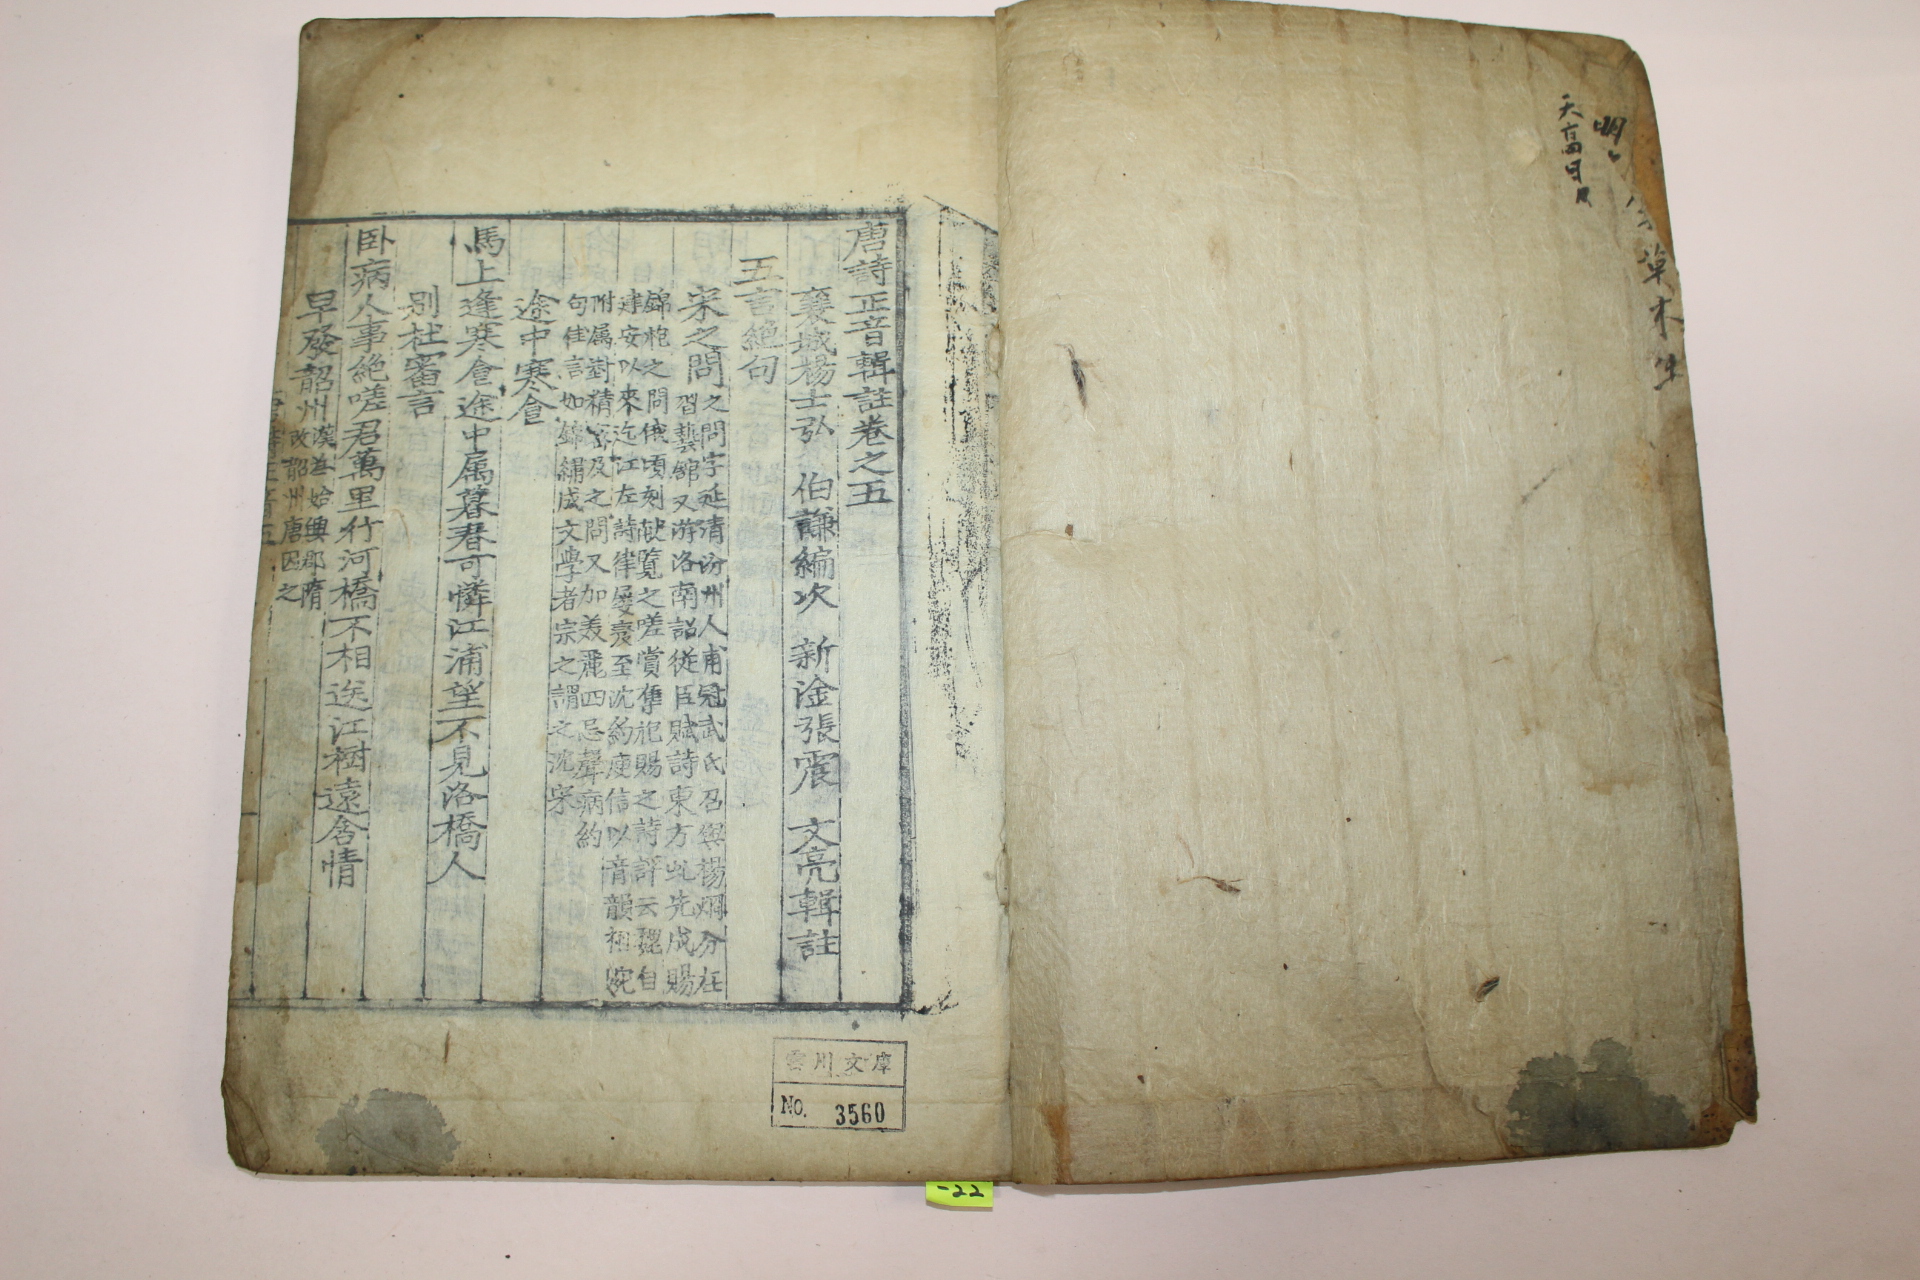 天富日月
明
草木生
唐詩正音輯註卷之五
襄城楊士弘 伯謙編次 新淦張震 文亮輯註
五言絶句
宋之問
之問字延清汾州人甫冠武氏召與楊烱分在
習藝館又游洛南詔從臣賦詩東方虬先成賜
錦袍之問俄頃刻献覽之嗟賞奪袍賜之詩評云魏自
建安以來迄江左詩律屢变至沈約庾信以音韻相婉
附属對精密及之問又加羙麗四忌聲病約
句佳言如錦繡成文學者宗之謂之沈宋
途中寒食
馬上逢寒食途中属暮春可憐江浦望不見洛橋人
別杜審言
卧病人事絶嗟君萬里行河橋不相送江樹遠含情
早發韶州
漢為始興郡隋
改韶州唐因之
雲川文庫
No. 3560
-22